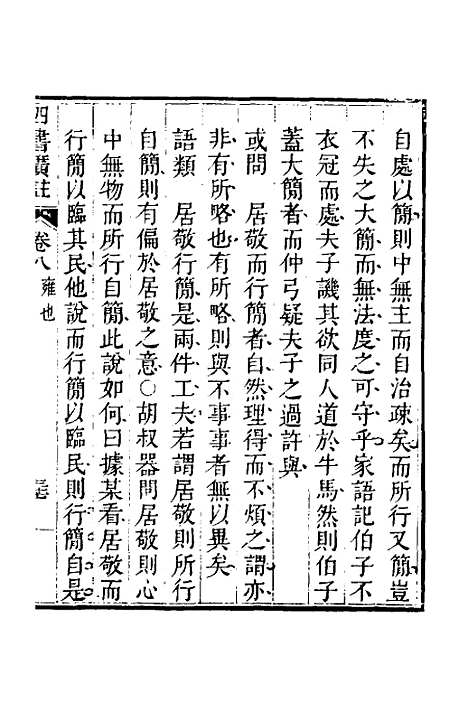 自處以簡則中無主而自治疎矣而所行又簡豈
不失之大簡而無法度之可守乎家語記伯子不
衣冠而處夫子譏其欲同人道於牛馬然則伯子
蓋大簡者而仲弓疑夫子之過許與
或問　居敬而行簡者自然理得而不煩之謂亦
非有所略也有所略則與不事事者無以異矣
語類　居敬行簡是兩件工夫若謂居敬則所行
自簡則有偏於居敬之意○胡叔器問居敬則心
中無物而所行自簡此說如何曰據某看居敬而
行簡以臨其民他說而行簡以臨民則行簡自是
四書廣註　卷八　雍也